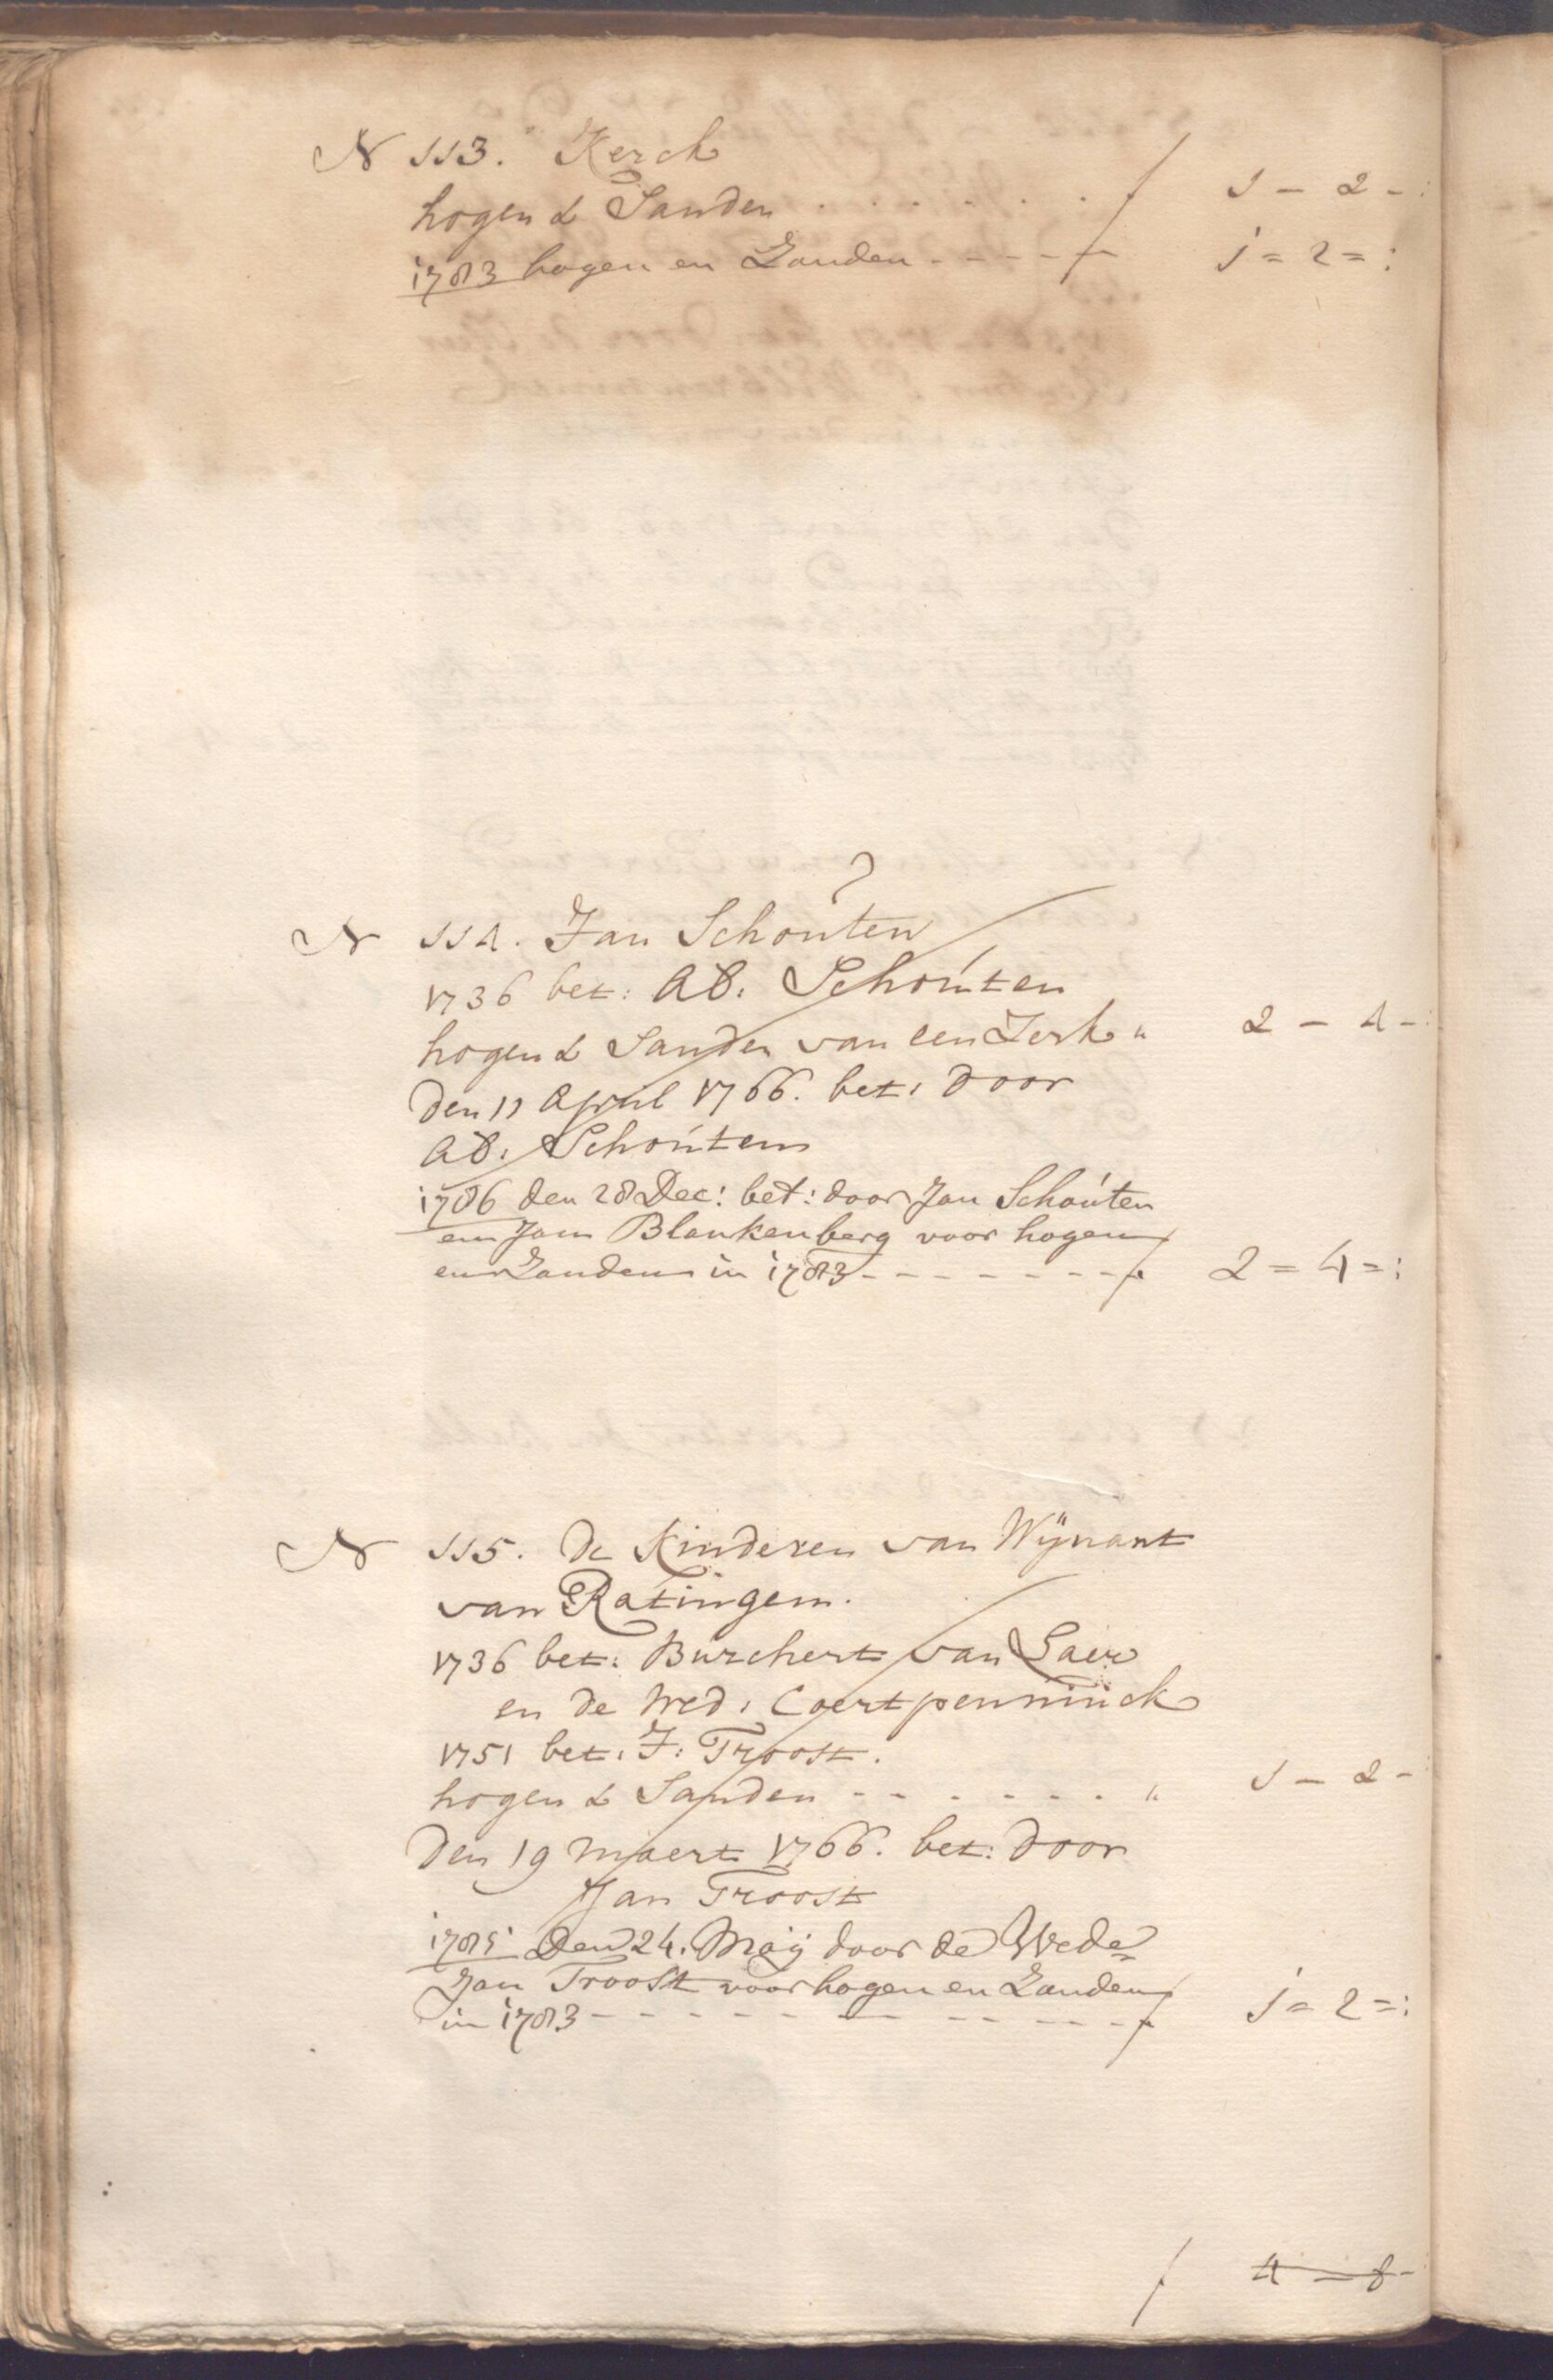 N 113. Kerck
hogen & Sanden . . . . . . . ƒ 1 - 2 - :
1783 hogen en Zanden - - - - ƒ 1 = 2 = :
N 114. Jan Schouten
1736 bet: Ab. Schouten
hogen & Sanden van een Zerk " 2 - 4 - :
Den 11 April 1766. bet: door
Ab. Schouten
1786 den 28 Dec: bet: door Jan Schouten
en Jan Blankenberg voor hogen
en Zanden in 1783 - - - - - - - - ƒ 2 = 4 = :
N 115. De Kinderen van Wÿnant
van Ratingen.
1736 bet: Burchert van Laer
en de Wed: Coertpenninck
1751 bet: J: Troost.
hogen & Sanden - - . - - - . " 1 - 2 -
Den 19 Maert 1766. bet: door
Jan Troost
1785 Den 24. Maÿ door de Wede
Jan Troost voor hogen en Zanden
in 1783 - - - - - - - - - - - ƒ 1 = 2 = :
ƒ 4 - 8 -